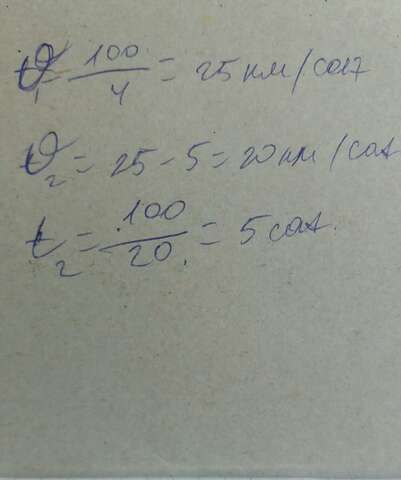 ϑ₁ = 100/4 = 25 км/соат
ϑ₂ = 25 - 5 = 20 км/соат
t₂ = 100/20 = 5 соат.